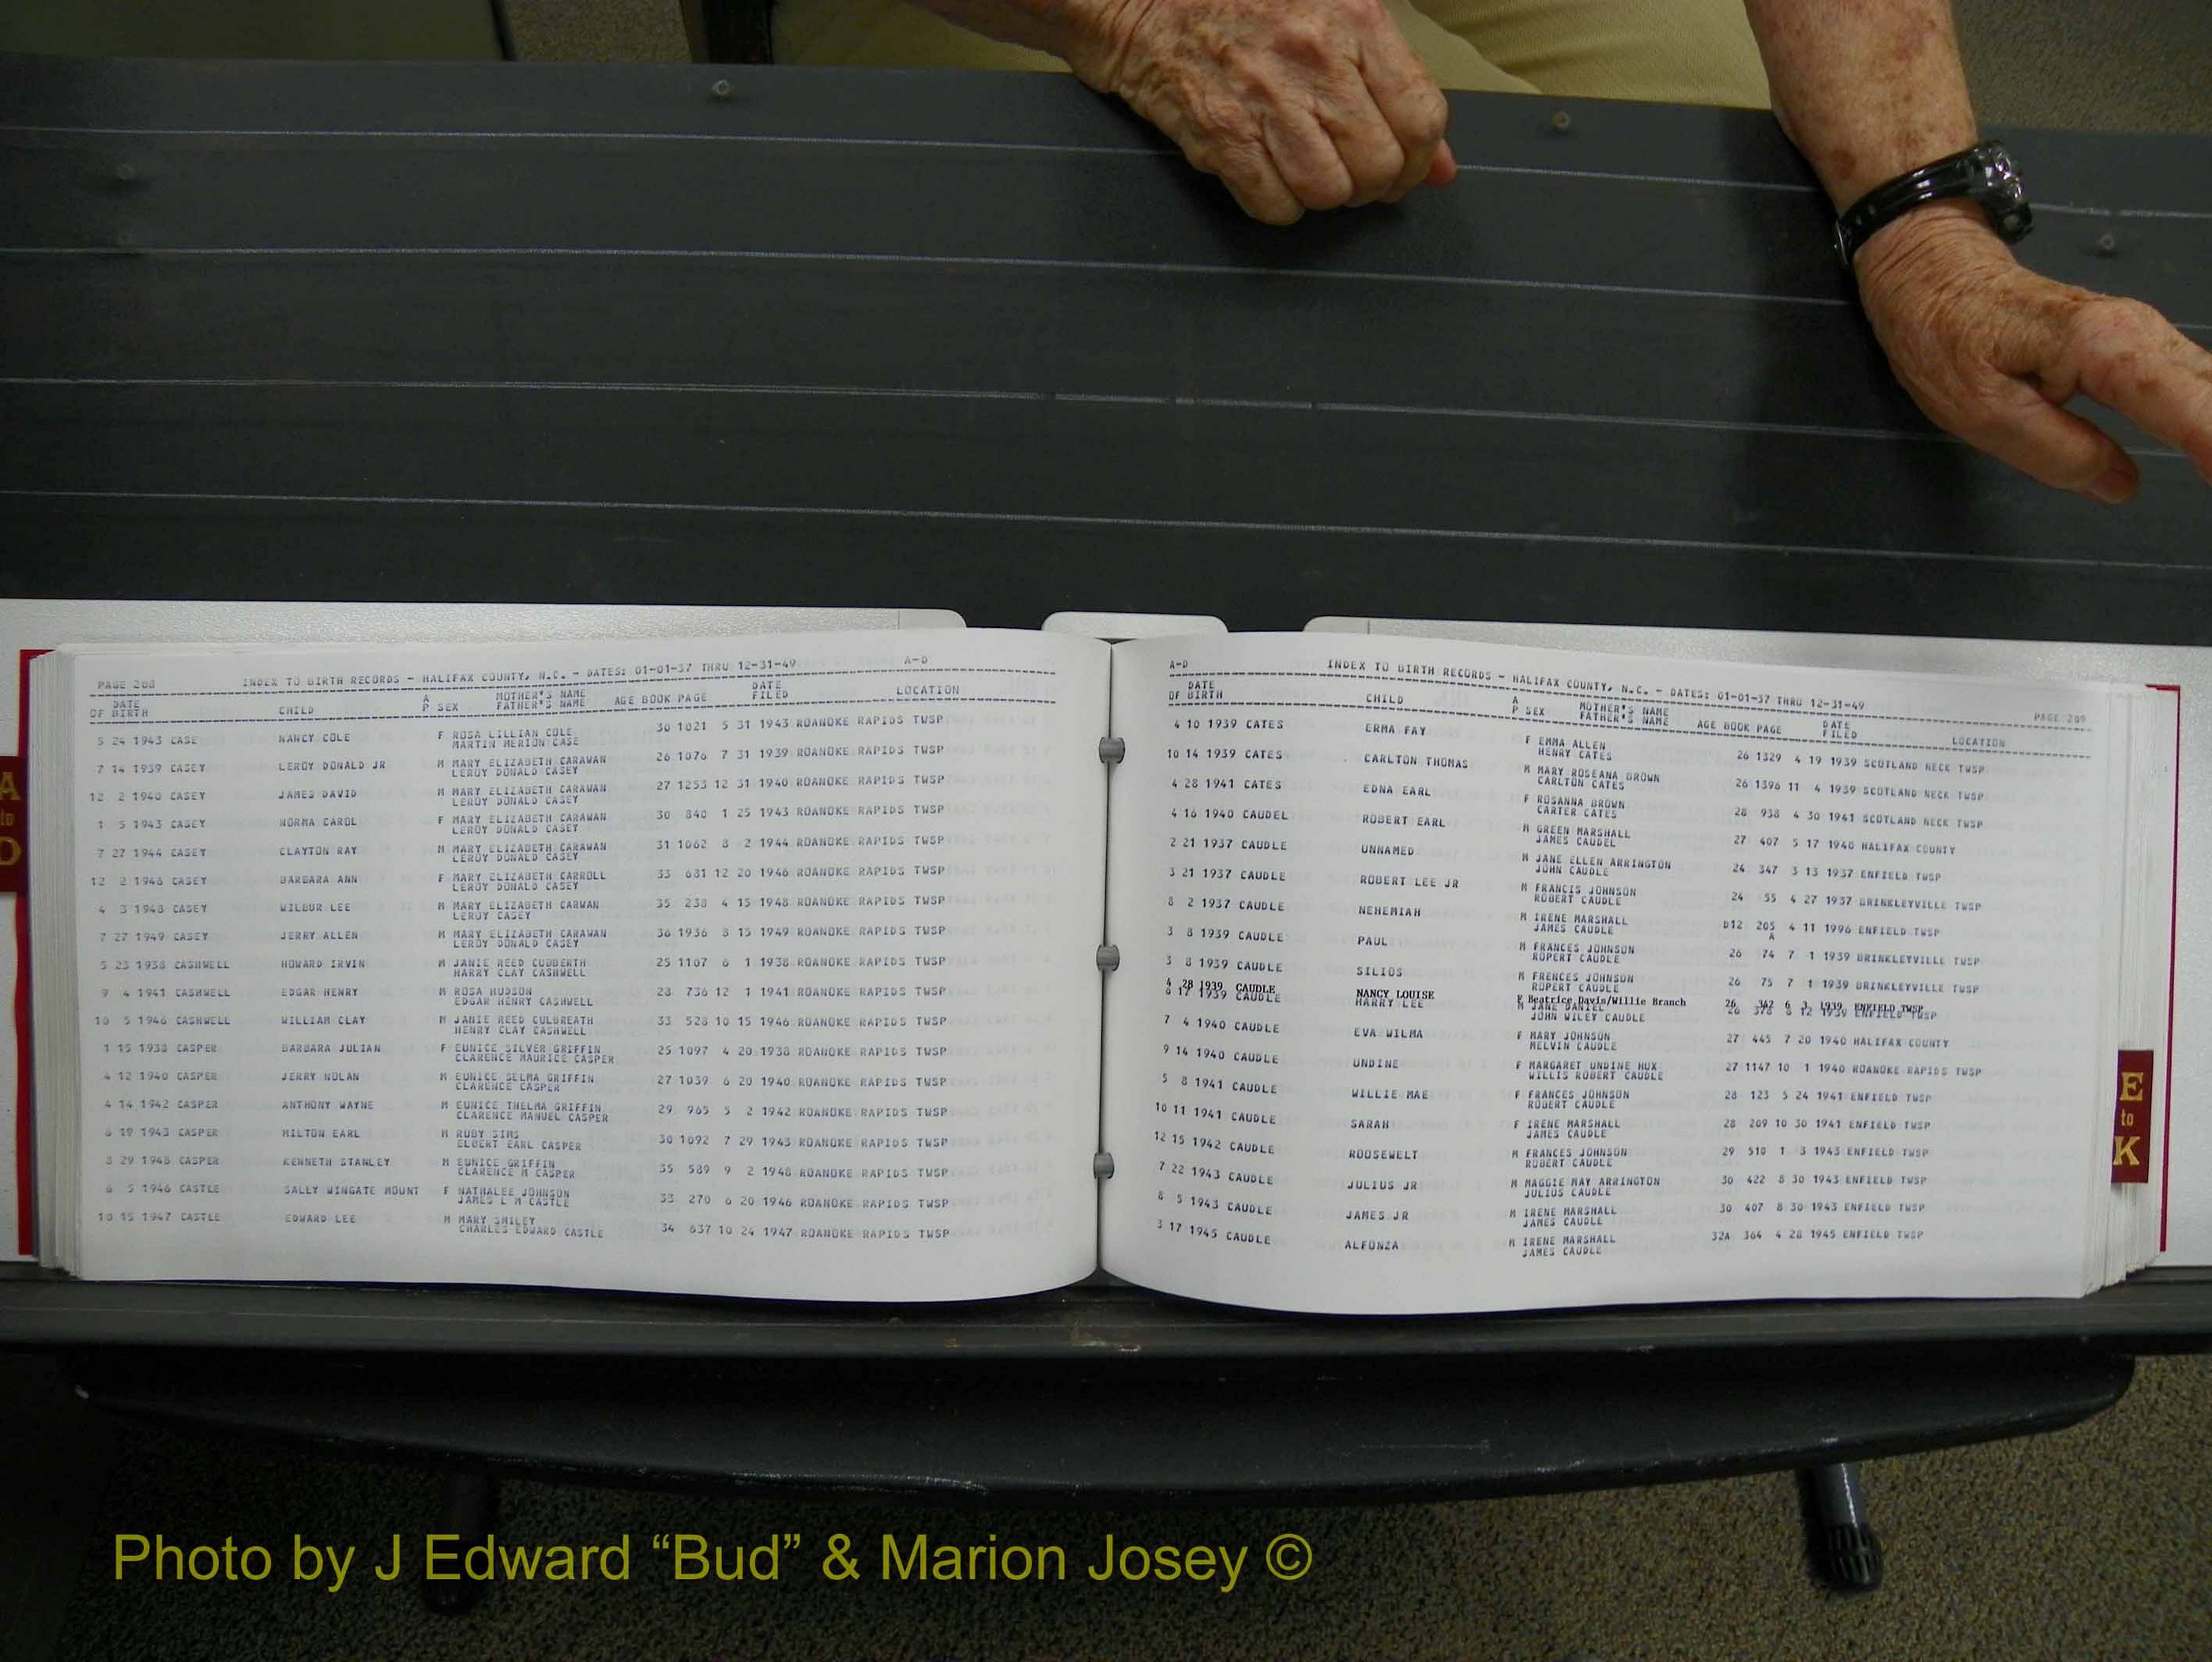 PAGE 208 INDEX TO BIRTH RECORDS - HALIFAX COUNTY, N.C. - DATES: 01-01-37 THRU 12-31-49 A-D
DATE OF BIRTH CHILD A P SEX MOTHER'S NAME FATHER'S NAME AGE BOOK PAGE DATE FILED LOCATION
5 24 1943 CASE NANCY COLE F ROSA LILLIAN COLE 30 1021 5 31 1943 ROANOKE RAPIDS TWSP
MARTIN MERION CASE
7 14 1939 CASEY LEROY DONALD JR M MARY ELIZABETH CARAWAN 26 1076 7 31 1939 ROANOKE RAPIDS TWSP
LEROY DONALD CASEY
12 2 1940 CASEY JAMES DAVID M MARY ELIZABETH CARAWAN 27 1253 12 31 1940 ROANOKE RAPIDS TWSP
LEROY DONALD CASEY
1 5 1943 CASEY NORMA CAROL F MARY ELIZABETH CARAWAN 30 840 1 25 1943 ROANOKE RAPIDS TWSP
LEROY DONALD CASEY
7 27 1944 CASEY CLAYTON RAY M MARY ELIZABETH CARAWAN 31 1062 8 2 1944 ROANOKE RAPIDS TWSP
LEROY DONALD CASEY
12 2 1946 CASEY BARBARA ANN F MARY ELIZABETH CARROLL 33 681 12 20 1946 ROANOKE RAPIDS TWSP
LEROY DONALD CASEY
4 3 1948 CASEY WILBUR LEE M MARY ELIZABETH CARWAN 35 238 4 15 1948 ROANOKE RAPIDS TWSP
LEROY CASEY
7 27 1949 CASEY JERRY ALLEN M MARY ELIZABETH CARAWAN 36 1936 8 15 1949 ROANOKE RAPIDS TWSP
LEROY DONALD CASEY
5 23 1938 CASHWELL HOWARD IRVIN M JANIE REED CUDBERTH 25 1107 6 1 1938 ROANOKE RAPIDS TWSP
HARRY CLAY CASHWELL
9 4 1941 CASHWELL EDGAR HENRY M ROSA HUDSON 28 736 12 1 1941 ROANOKE RAPIDS TWSP
EDGAR HENRY CASHWELL
10 5 1946 CASHWELL WILLIAM CLAY M JANIE REED CULBREATH 33 528 10 15 1946 ROANOKE RAPIDS TWSP
HENRY CLAY CASHWELL
1 15 1938 CASPER BARBARA JULIAN F EUNICE SILVER GRIFFIN 25 1097 4 20 1938 ROANOKE RAPIDS TWSP
CLARENCE MAURICE CASPER
4 12 1940 CASPER JERRY NOLAN M EUNICE SELMA GRIFFIN 27 1039 6 20 1940 ROANOKE RAPIDS TWSP
CLARENCE CASPER
4 14 1942 CASPER ANTHONY WAYNE M EUNICE THELMA GRIFFIN 29 965 5 2 1942 ROANOKE RAPIDS TWSP
CLARENCE MANUEL CASPER
6 19 1943 CASPER MILTON EARL M RUBY SIMS 30 1092 7 29 1943 ROANOKE RAPIDS TWSP
ELBERT EARL CASPER
8 29 1948 CASPER KENNETH STANLEY M EUNICE GRIFFIN 35 589 9 2 1948 ROANOKE RAPIDS TWSP
CLARENCE M CASPER
6 5 1946 CASTLE SALLY WINGATE MOUNT F NATHALEE JOHNSON 33 270 6 20 1946 ROANOKE RAPIDS TWSP
JAMES L M CASTLE
10 15 1947 CASTLE EDWARD LEE M MARY SMILEY 34 637 10 24 1947 ROANOKE RAPIDS TWSP
CHARLES EDWARD CASTLE
A-D INDEX TO BIRTH RECORDS - HALIFAX COUNTY, N.C. - DATES: 01-01-37 THRU 12-31-49 PAGE 209
DATE OF BIRTH CHILD A P SEX MOTHER'S NAME FATHER'S NAME AGE BOOK PAGE DATE FILED LOCATION
4 10 1939 CATES ERMA FAY F EMMA ALLEN 26 1329 4 19 1939 SCOTLAND NECK TWSP
HENRY CATES
10 14 1939 CATES CARLTON THOMAS M MARY ROSEANA BROWN 26 1396 11 4 1939 SCOTLAND NECK TWSP
CARLTON CATES
4 28 1941 CATES EDNA EARL F ROSANNA BROWN 28 938 4 30 1941 SCOTLAND NECK TWSP
CARTER CATES
4 16 1940 CAUDEL ROBERT EARL M GREEN MARSHALL 27 407 5 17 1940 HALIFAX COUNTY
JAMES CAUDEL
2 21 1937 CAUDLE UNNAMED M JANE ELLEN ARRINGTON 24 347 3 13 1937 ENFIELD TWSP
JOHN CAUDLE
3 21 1937 CAUDLE ROBERT LEE JR M FRANCIS JOHNSON 24 55 4 27 1937 BRINKLEYVILLE TWSP
ROBERT CAUDLE
8 2 1937 CAUDLE NEHEMIAH M IRENE MARSHALL D12 205 4 11 1996 ENFIELD TWSP
JAMES CAUDLE A
3 8 1939 CAUDLE PAUL M FRANCES JOHNSON 26 74 7 1 1939 BRINKLEYVILLE TWSP
RUPERT CAUDLE
3 8 1939 CAUDLE SILIOS M FRENCES JOHNSON 26 75 7 1 1939 BRINKLEYVILLE TWSP
RUPERT CAUDLE
4 28 1939 CAUDLE NANCY LOUISE F Beatrice Davis/Willie Branch 26 342 6 3 1939 ENFIELD TWSP
6 17 1939 CAUDLE HARRY LEE M JANE DANIEL 26 378 8 12 1939 ENFIELD TWSP
JOHN WILEY CAUDLE
7 4 1940 CAUDLE EVA WILMA F MARY JOHNSON 27 445 7 20 1940 HALIFAX COUNTY
MELVIN CAUDLE
9 14 1940 CAUDLE UNDINE F MARGARET UNDINE HUX 27 1147 10 1 1940 ROANOKE RAPIDS TWSP
WILLIS ROBERT CAUDLE
5 8 1941 CAUDLE WILLIE MAE F FRANCES JOHNSON 28 123 5 24 1941 ENFIELD TWSP
ROBERT CAUDLE
10 11 1941 CAUDLE SARAH F IRENE MARSHALL 28 209 10 30 1941 ENFIELD TWSP
JAMES CAUDLE
12 15 1942 CAUDLE ROOSEWELT M FRANCES JOHNSON 29 510 1 3 1943 ENFIELD TWSP
ROBERT CAUDLE
7 22 1943 CAUDLE JULIUS JR M MAGGIE MAY ARRINGTON 30 422 8 30 1943 ENFIELD TWSP
JULIUS CAUDLE
8 5 1943 CAUDLE JAMES JR M IRENE MARSHALL 30 407 8 30 1943 ENFIELD TWSP
JAMES CAUDLE
3 17 1945 CAUDLE ALFONZA M IRENE MARSHALL 32A 364 4 28 1945 ENFIELD TWSP
JAMES CAUDLE
A
to
D
E
to
K
Photo by J Edward “Bud” & Marion Josey ©